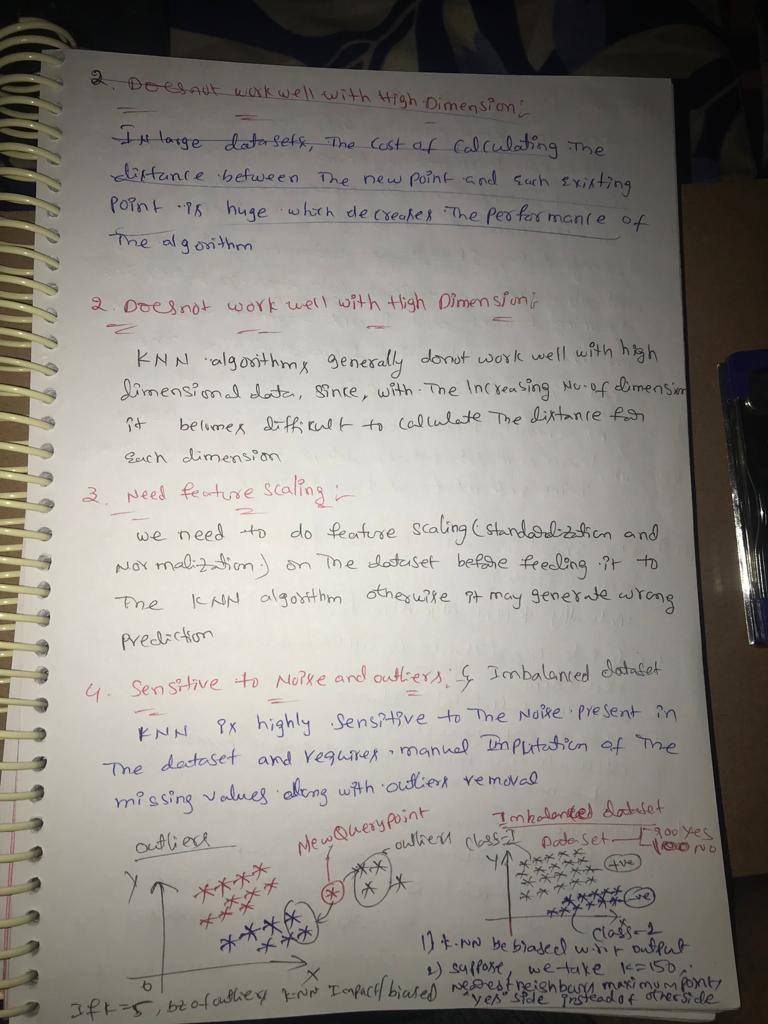 2. Doesnot work well with High Dimension:
In large datasets, The Cost of Calculating The
distance between The new point and Each Existing
point is huge which decreases The performance of
The algorithm
2. Doesnot work well with High Dimension:
KNN algorithms generally donot work well with high
dimensional data, since, with The Increasing No. of dimension
it becomes difficult to calculate The distance for
Each dimension
3. Need feature scaling:
we need to do feature scaling (standardization and
Normalization) on The dataset before feeding it to
The KNN algorithm otherwise it may generate wrong
prediction
4. Sensitive to Noise and outliers: & Imbalanced dataset
KNN is highly sensitive to The Noise present in
The dataset and requires manual Imputation of The
missing values along with outliers removal
outliers
New Query point
outliers
Y
0
X
If k=5, bz of outliers KNN Impact/biased
Imbalanced dataset
Dataset 900 yes
NO
class-1
Y
+ve
-ve
X
class-2
1) K-NN be biased w.r.t output
2) suppose, we take K=150,
nearest neighbours maximum points
"yes" side instead of other side